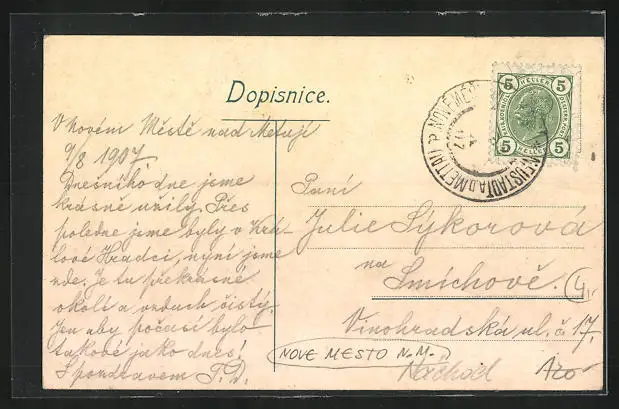 Dopisnice.
V Novém Městě nad Metují
9/8 1907.
Dnešního dne jsme
krásně užily. Přes
poledne jsme byly v Krá-
lové Hradci, nyní jsme
zde. Je tu překrásné
okolí a vzduch čistý.
Jen aby počasí bylo
takové jako dnes!
S pozdravem F. D.
Paní
Julie Sýkorová
na
Smíchově.
Vinohradská ul. č. 17.
NOVE MESTO N.M.
Náchod
120
5 HELLER 5
5 HELLER 5
NOVÉ MĚ
NEUSTADT A.D. METTAU